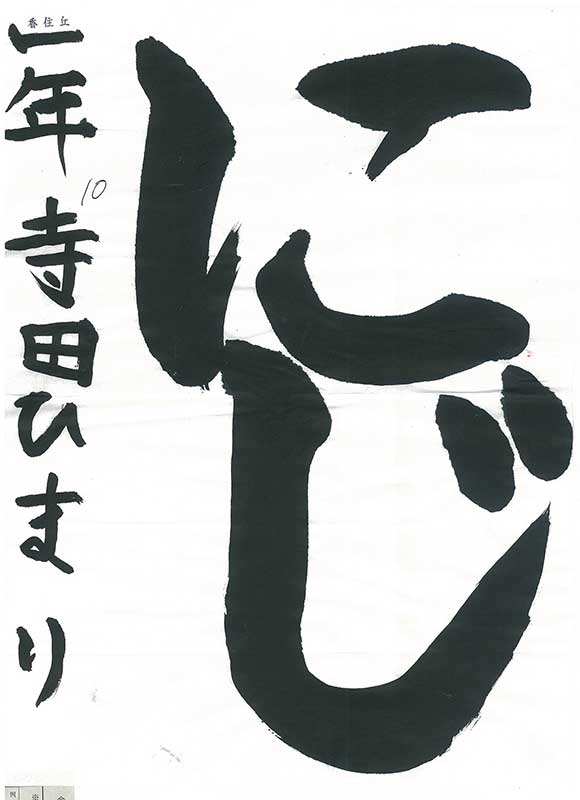 にじ
香住丘
一年 寺田ひまり
10